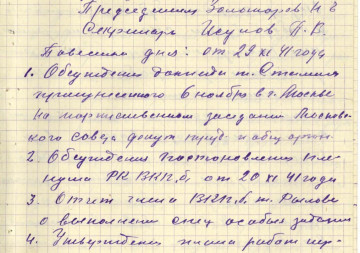 Председатель Золотарев И Е
Секретарь Исупов П. В.
Повестка дня: от 29 XI 41 года
1. Обсуждение доклада т. Сталина
произнесенного 6 ноября в г. Москве
на торжественном заседании Московс-
кого совета депут труд. и общ. орган.
2. Обсуждение постановления пле-
нума РК ВКП.б, от 20 XI 41 года
3. Отчет члена ВКП.б. т.
о выполнении спец особых задания
4. Утверждение плана работ